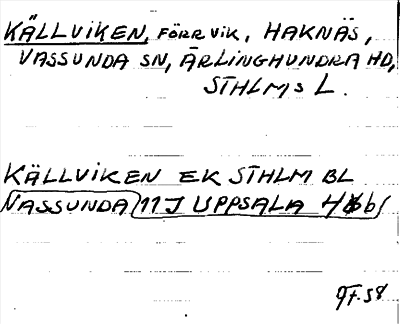 KÄLLVIKEN, FÖRR VIK, HAKNÄS,
VASSUNDA SN, ÄRLINGHUNDRA HD,
STHLMS L.
KÄLLVIKEN EK STHLM BL
VASSUNDA 11 I UPPSALA